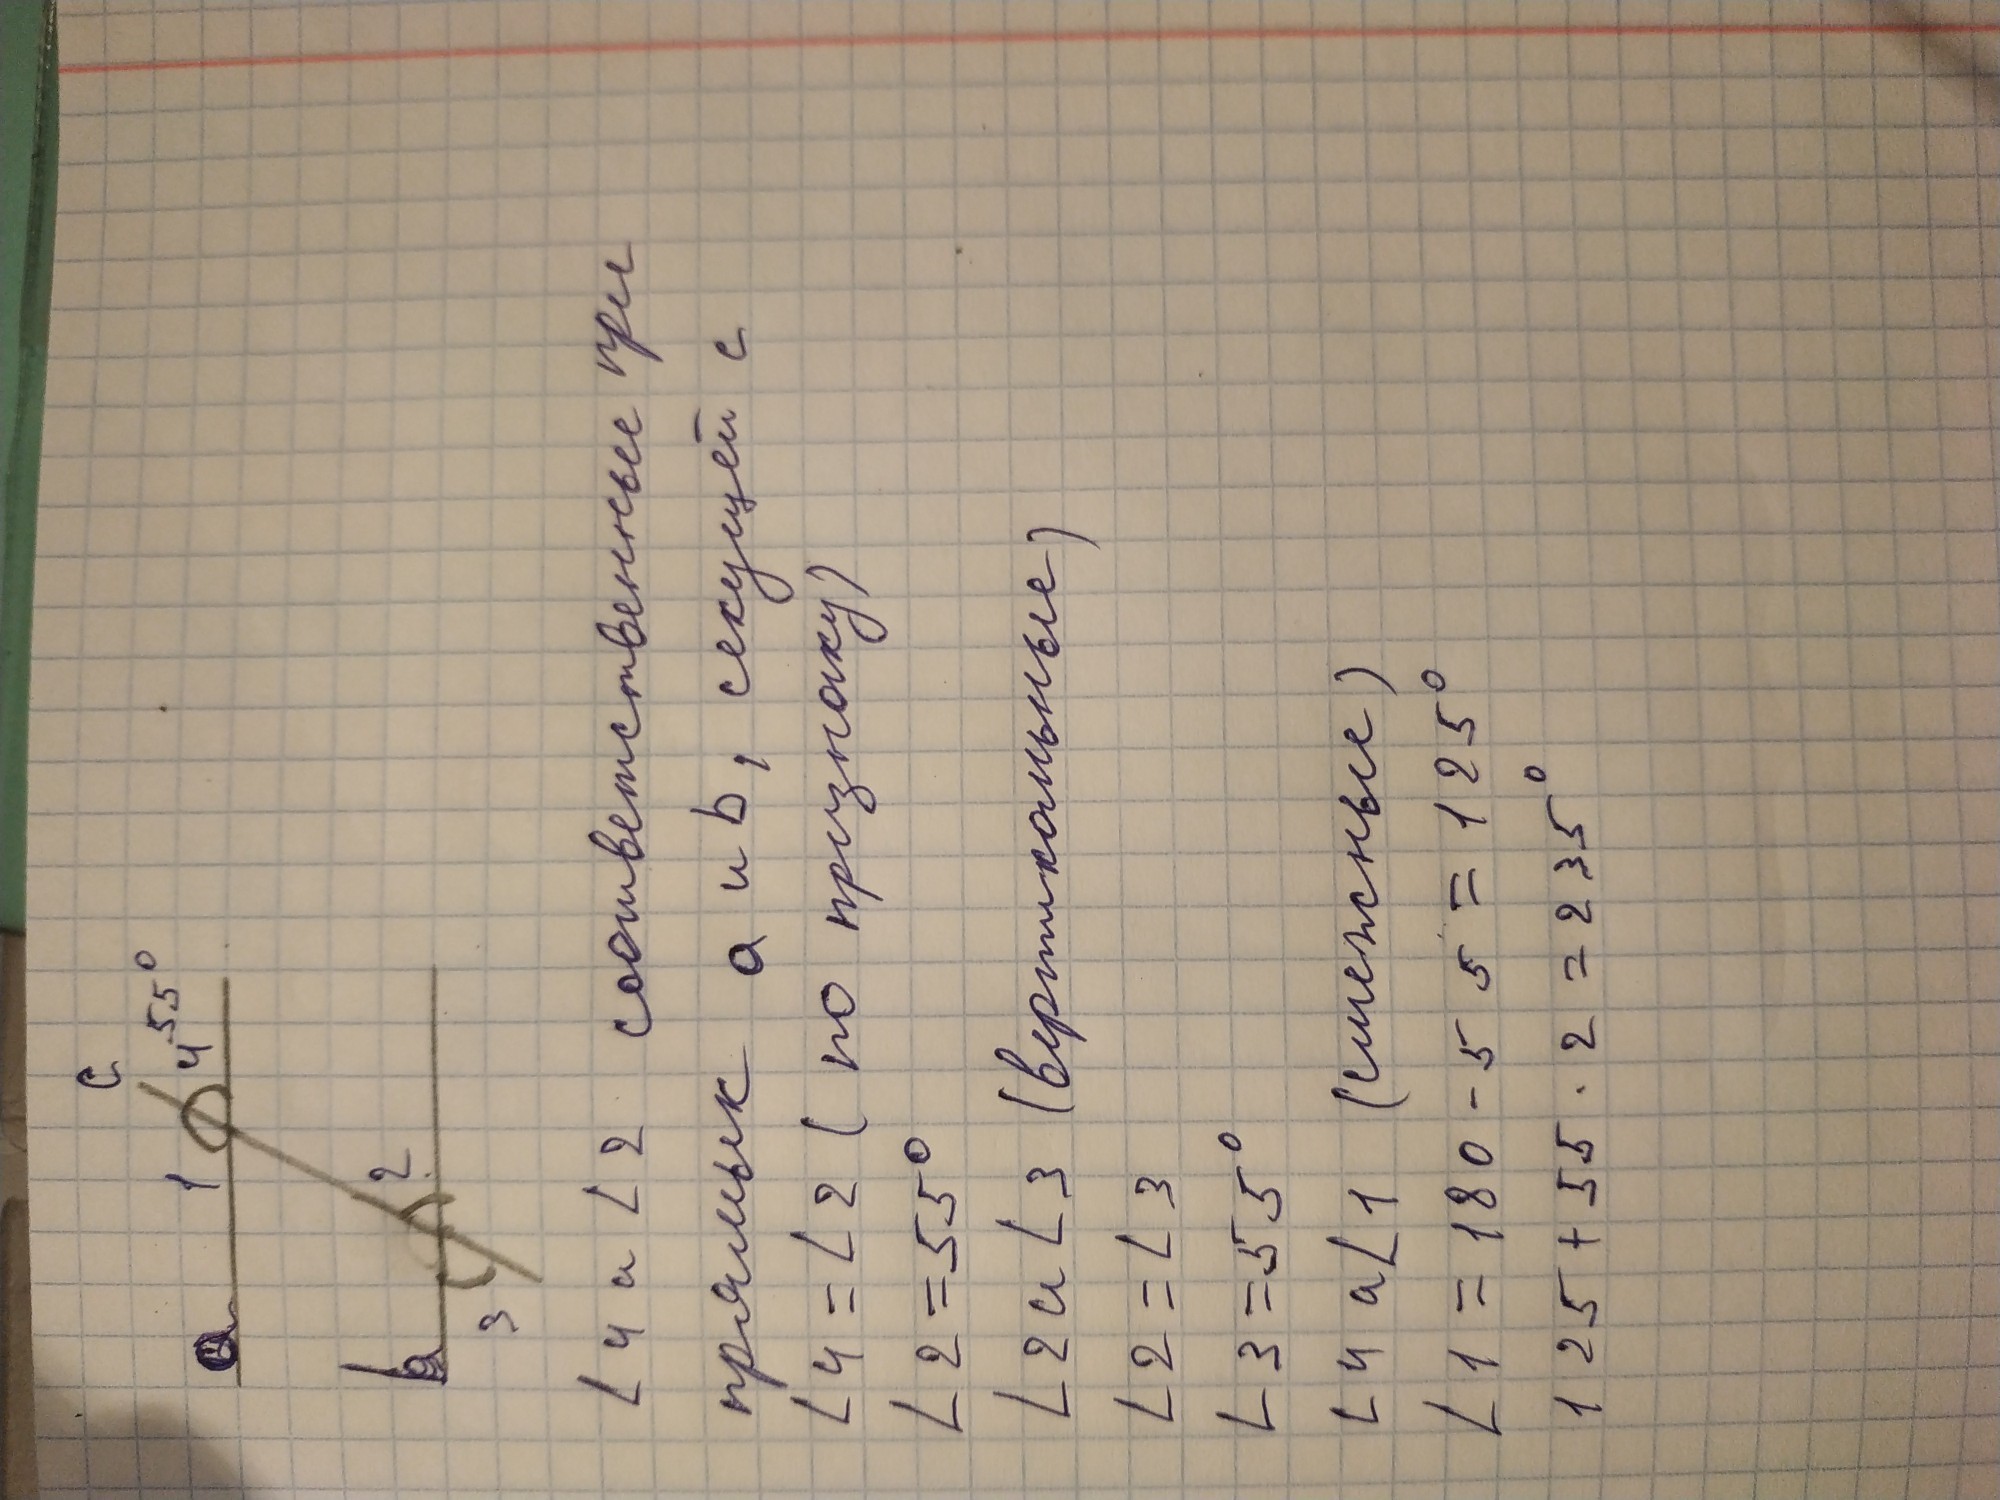 c
1 4 55°
a
2
b
3
∠4 и ∠2 соответственные при
прямых a и b, секущей c
∠4 = ∠2 (по признаку)
∠2 = 55°
∠2 и ∠3 (вертикальные)
∠2 = ∠3
∠3 = 55°
∠4 и ∠1 (смежные)
∠1 = 180 - 55 = 125°
125 + 55 · 2 = 235°